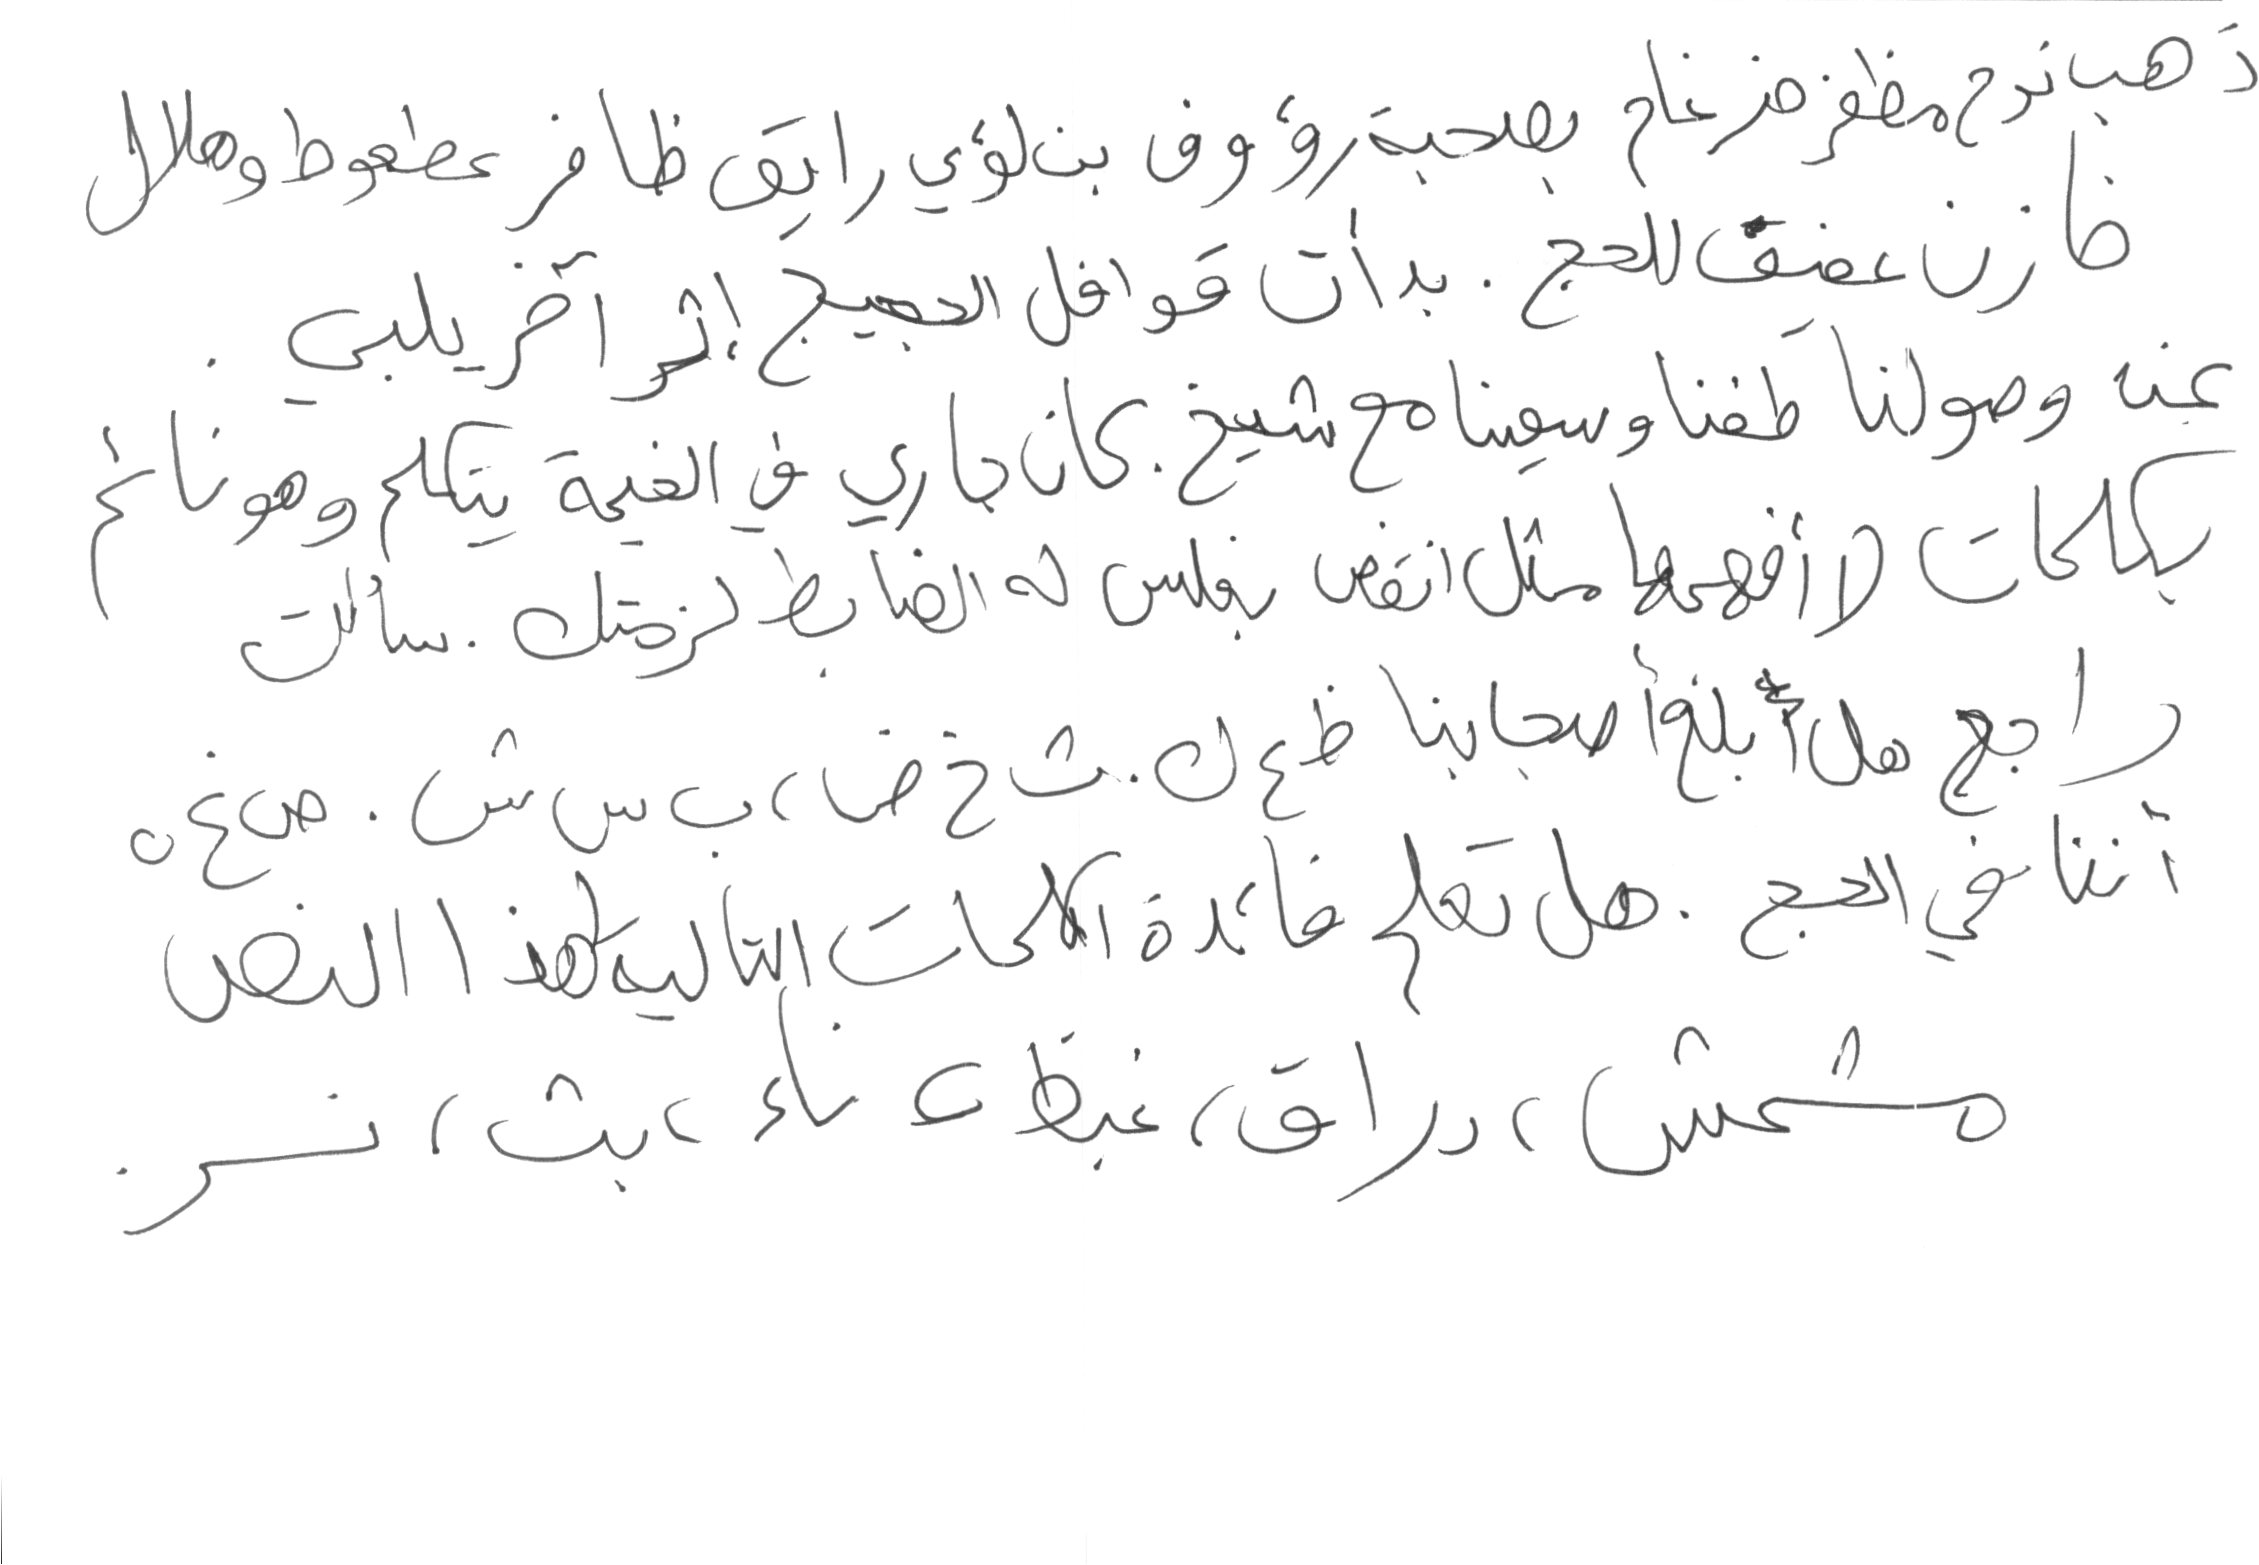 ذهب نوح مظفر ضرغام بصحبة رؤوف بن لؤي رايق ظافر عطعوط وهلال
ظازن عفيف للحج . بدأت قوافل الحجيج إثر آخر يلبي .
عند وصولنا طفنا وسعينا مع شيخ . كان جاري في الخيمة يتكلم وهو نائم
بكلمات لا أفهمها مثل انقض بغلس له الضابط لزمتك . سألت
راجح هل أبلغ أصحابنا ظ ع ك . ث خ ض ، ب س ش . ص غ ه
أننا في الحج . هل تعلم فائدة الكلمات التالية لهذا النص
مشمش ، دراق ، غبظ ء ناء ، بث ، نز .